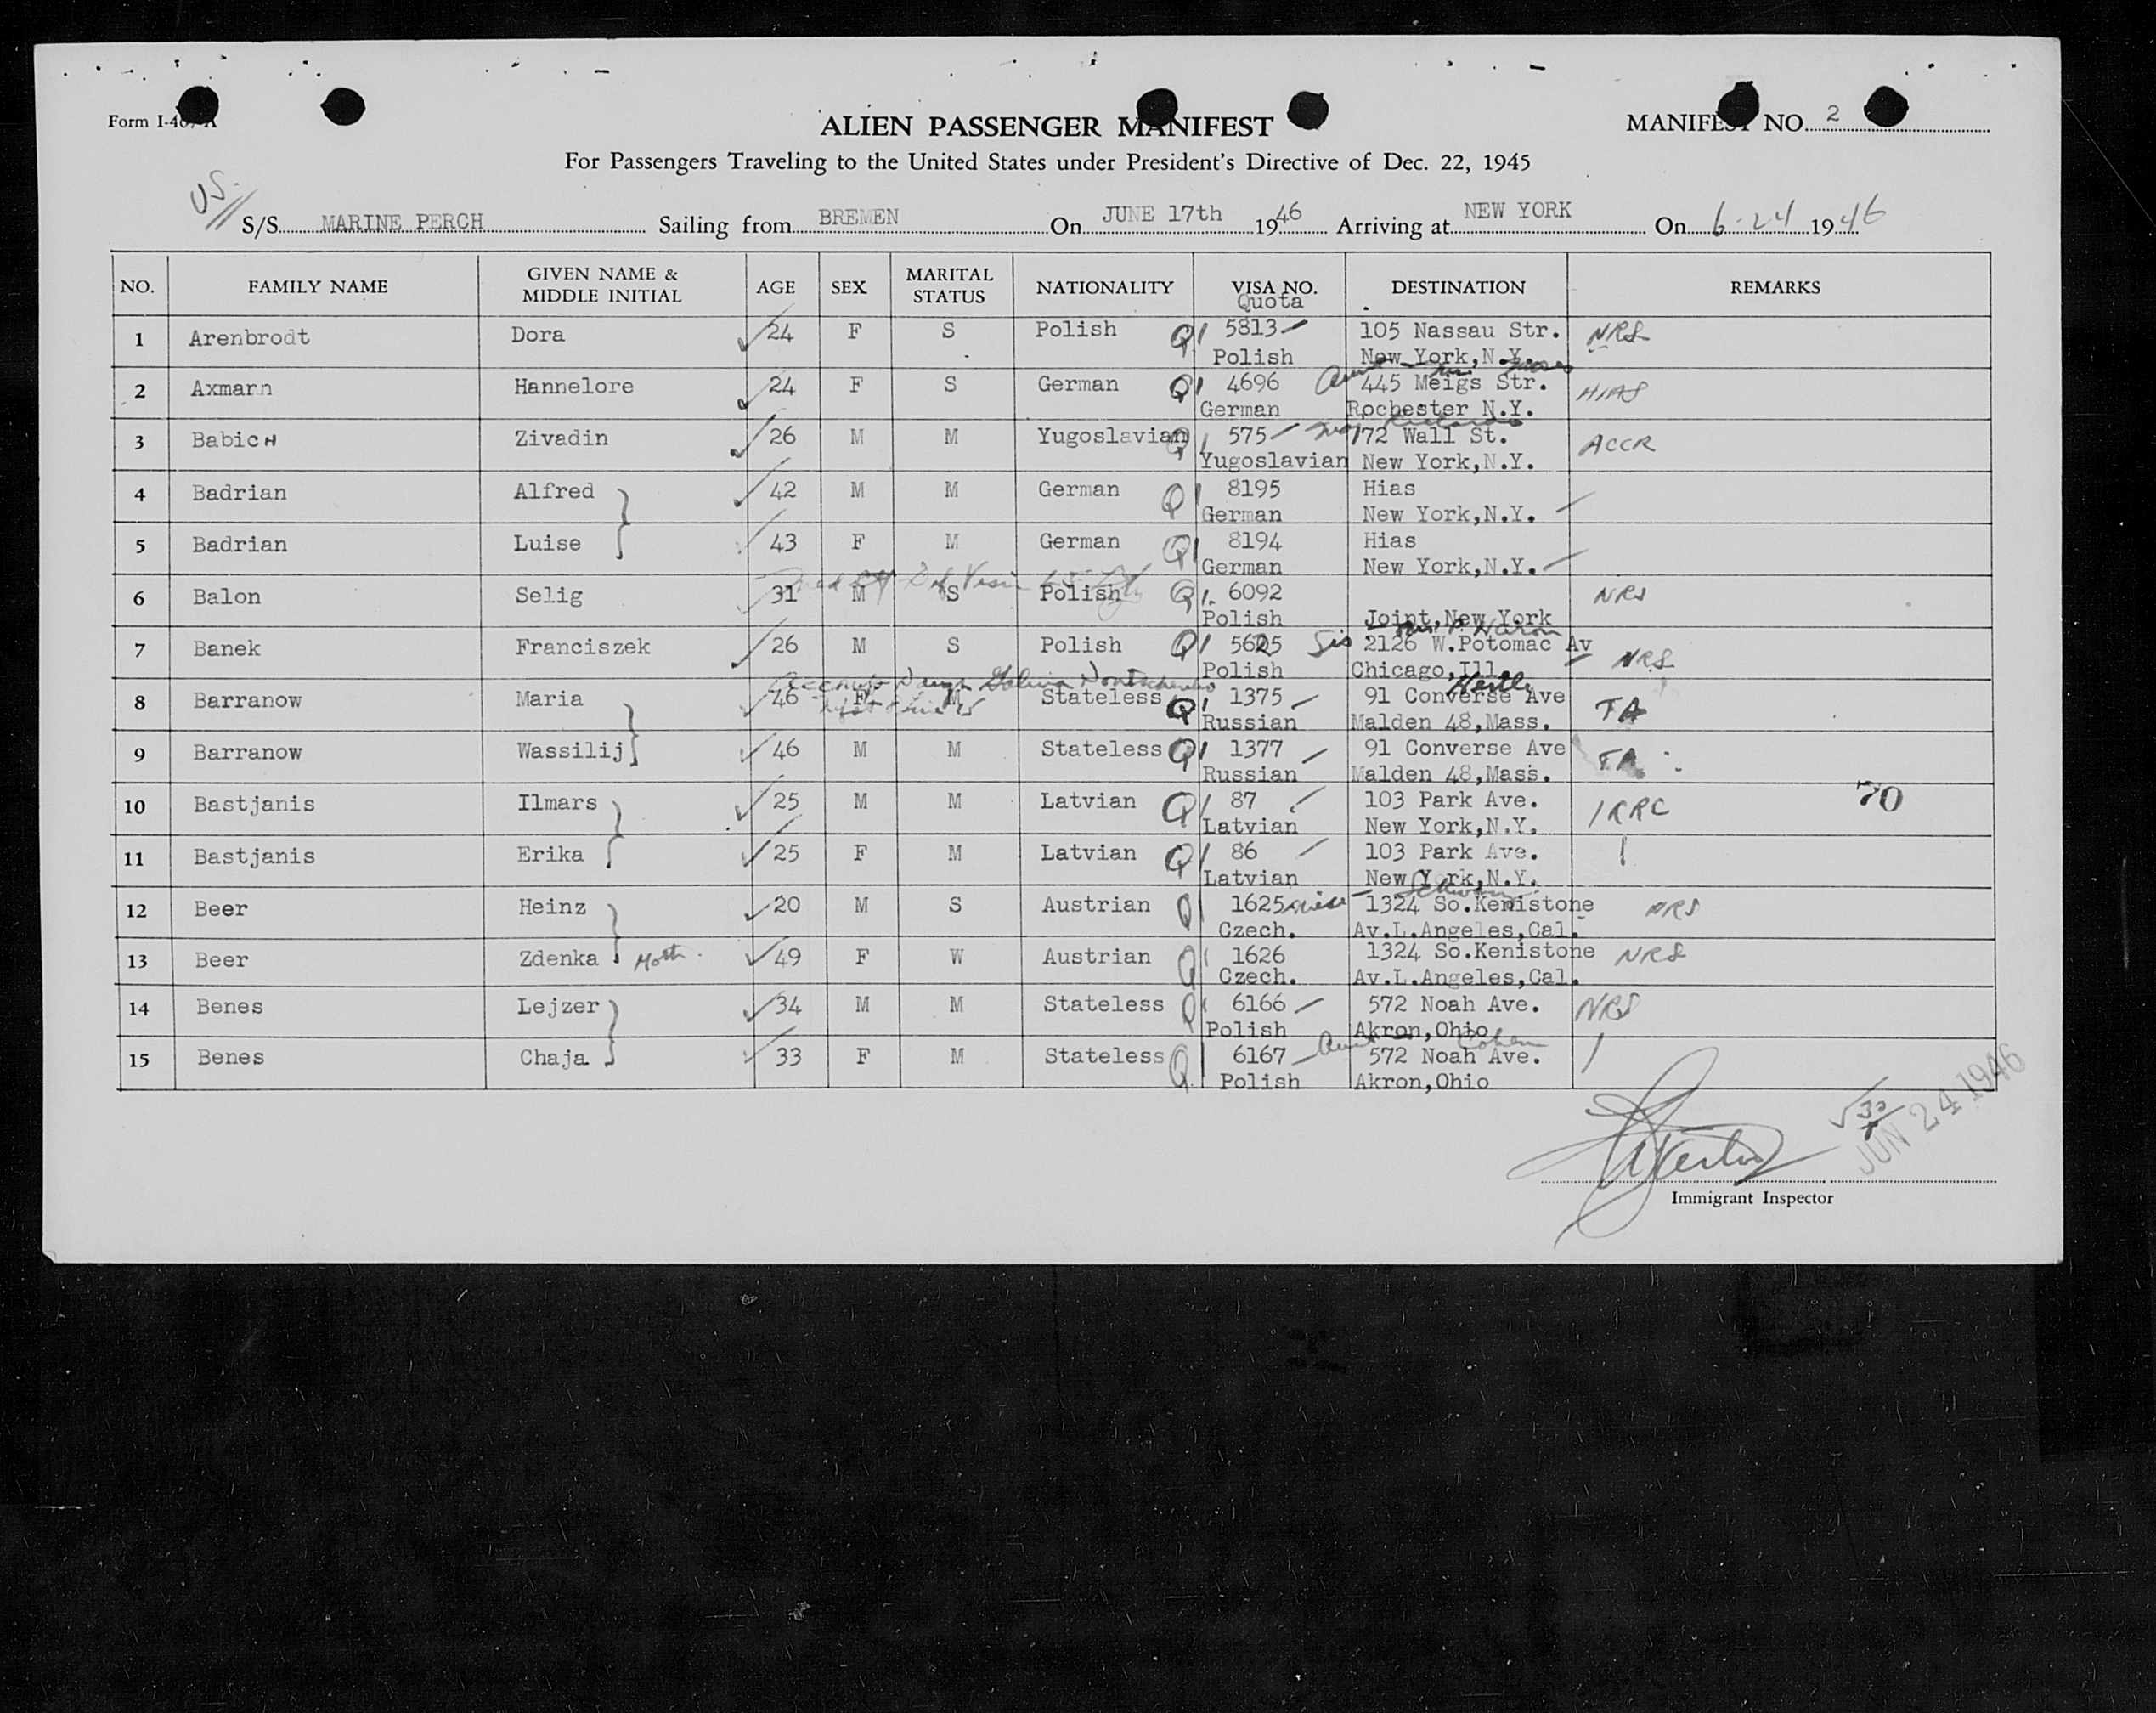 Form I-407-A
ALIEN PASSENGER MANIFEST
MANIFEST NO. 2
For Passengers Traveling to the United States under President's Directive of Dec. 22, 1945
US
S/S MARINE PERCH Sailing from BREMEN On JUNE 17th 1946 Arriving at NEW YORK On 6-24 1946
NO. FAMILY NAME GIVEN NAME & MIDDLE INITIAL AGE SEX MARITAL STATUS NATIONALITY VISA NO. Quota DESTINATION REMARKS
1 Arenbrodt Dora 24 F S Polish Q1 5813 105 Nassau Str. NRS
Polish New York,N.Y.
Aunt
2 Axmann Hannelore 24 F S German Q1 4696 445 Meigs Str. HIAS
German Rochester N.Y.
3 BabicH Zivadin 26 M M Yugoslavian Q 575 172 Wall St. ACCR
Yugoslavian New York,N.Y.
4 Badrian Alfred 42 M M German Q1 8195 Hias
German New York,N.Y.
5 Badrian Luise 43 F M German Q1 8194 Hias
German New York,N.Y.
6 Balon Selig 31 M S Polish Q1. 6092 NRS
Polish Joint,New York
7 Banek Franciszek 26 M S Polish Q1 5625 Sis 2126 W.Potomac Av
Polish Chicago,Ill. NRS
8 Barranow Maria 46 F M Stateless Q1 1375 91 Converse Ave TA
Russian Malden 48,Mass.
9 Barranow Wassilij 46 M M Stateless Q1 1377 91 Converse Ave TA
Russian Malden 48,Mass.
10 Bastjanis Ilmars 25 M M Latvian Q1 87 103 Park Ave. IRRC 70
Latvian New York,N.Y.
11 Bastjanis Erika 25 F M Latvian Q1 86 103 Park Ave.
Latvian New York,N.Y.
12 Beer Heinz 20 M S Austrian Q1 1625 1324 So.Kenistone NRS
Czech. Av.L.Angeles,Cal.
13 Beer Zdenka Moth. 49 F W Austrian Q1 1626 1324 So.Kenistone NRS
Czech. Av.L.Angeles,Cal.
14 Benes Lejzer 34 M M Stateless Q1 6166 572 Noah Ave. NRS
Polish Akron,Ohio
Aunt Cohen
15 Benes Chaja 33 F M Stateless Q 6167 572 Noah Ave.
Polish Akron,Ohio
JUN 24 1946
Immigrant Inspector